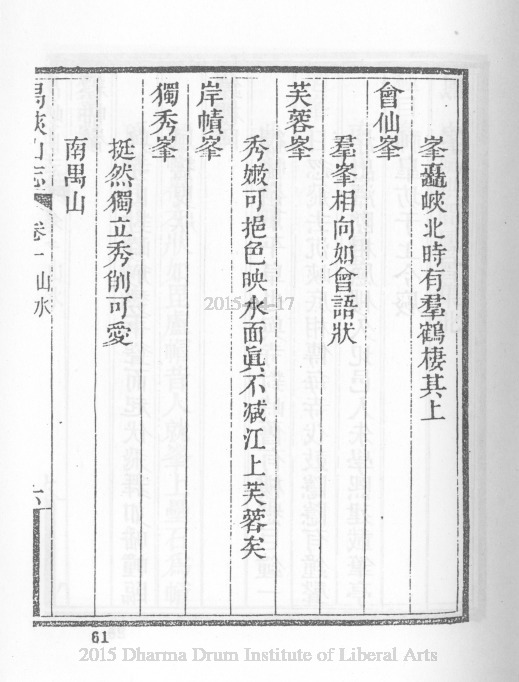 峯矗峽北時有羣鶴棲其上
會仙峯
羣峯相向如會語狀
芙蓉峯
秀嫩可挹色映水面眞不減江上芙蓉矣
岸幘峯
獨秀峯
挺然獨立秀削可愛
南禺山
禺峽山志 卷一 山水 六
2015-04-17
61
2015 Dharma Drum Institute of Liberal Arts